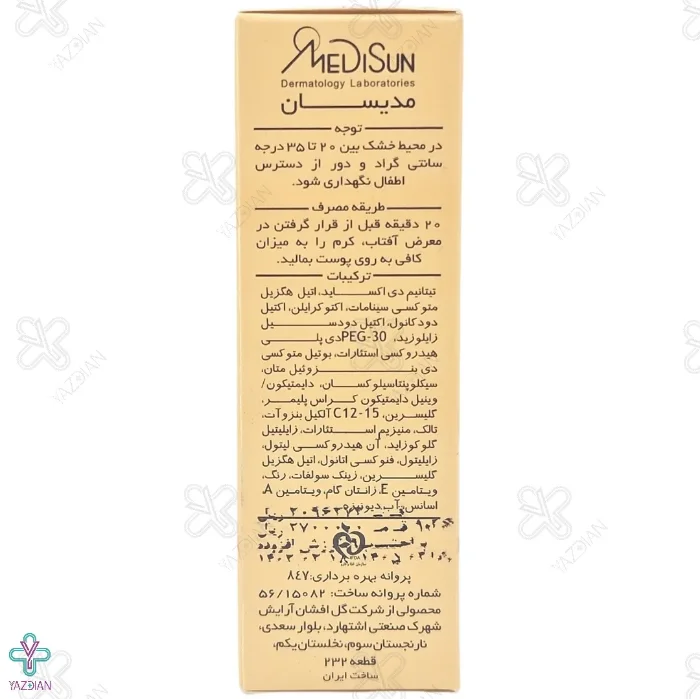 MEDISUN
Dermatology Laboratories
مدیسان
توجه
در محیط خشک بین ۲۰ تا ۳۵ درجه
سانتی گراد و دور از دسترس
اطفال نگهداری شود.
طریقه مصرف
۲۰ دقیقه قبل از قرار گرفتن در
معرض آفتاب، کرم را به میزان
کافی به روی پوست بمالید.
ترکیبات
تیتانیم دی اکساید، اتیل هگزیل
متوکسی سینامات، اکتوکرایلن، اکتیل
دودکانول، اکتیل دودسیل
زایلوزید، PEG-30 دی پلی
هیدروکسی استئارات، بوتیل متوکسی
دی بنزوئیل متان،
سیکلوپنتاسیلوکسان، دایمتیکون/
وینیل دایمتیکون کراس پلیمر،
گلیسرین، C12-15 آلکیل بنزوآت،
تالک، منیزیم استئارات، زایلیتیل
گلوکوزاید، آن هیدروکسی لیتول،
زایلیتول، فنوکسی اتانول، اتیل هگزیل
گلیسرین، زینک سولفات، رنگ،
ویتامین E، زانتان گام، ویتامین A،
اسانس، آب دیونیزه
۲۰۹۶۲۷۲ ریال
قیمت ۲۷۰۰۰۰۰ ریال
ارزش افزوده
پروانه بهره برداری: ۸۴۷
شماره پروانه ساخت: ۵۶/۱۵۰۸۲
محصولی از شرکت گل افشان آرایش
شهرک صنعتی اشتهارد، بلوار سعدی،
نارنجستان سوم، نخلستان یکم،
قطعه ۲۳۲
ساخت ایران
YAZDIAN